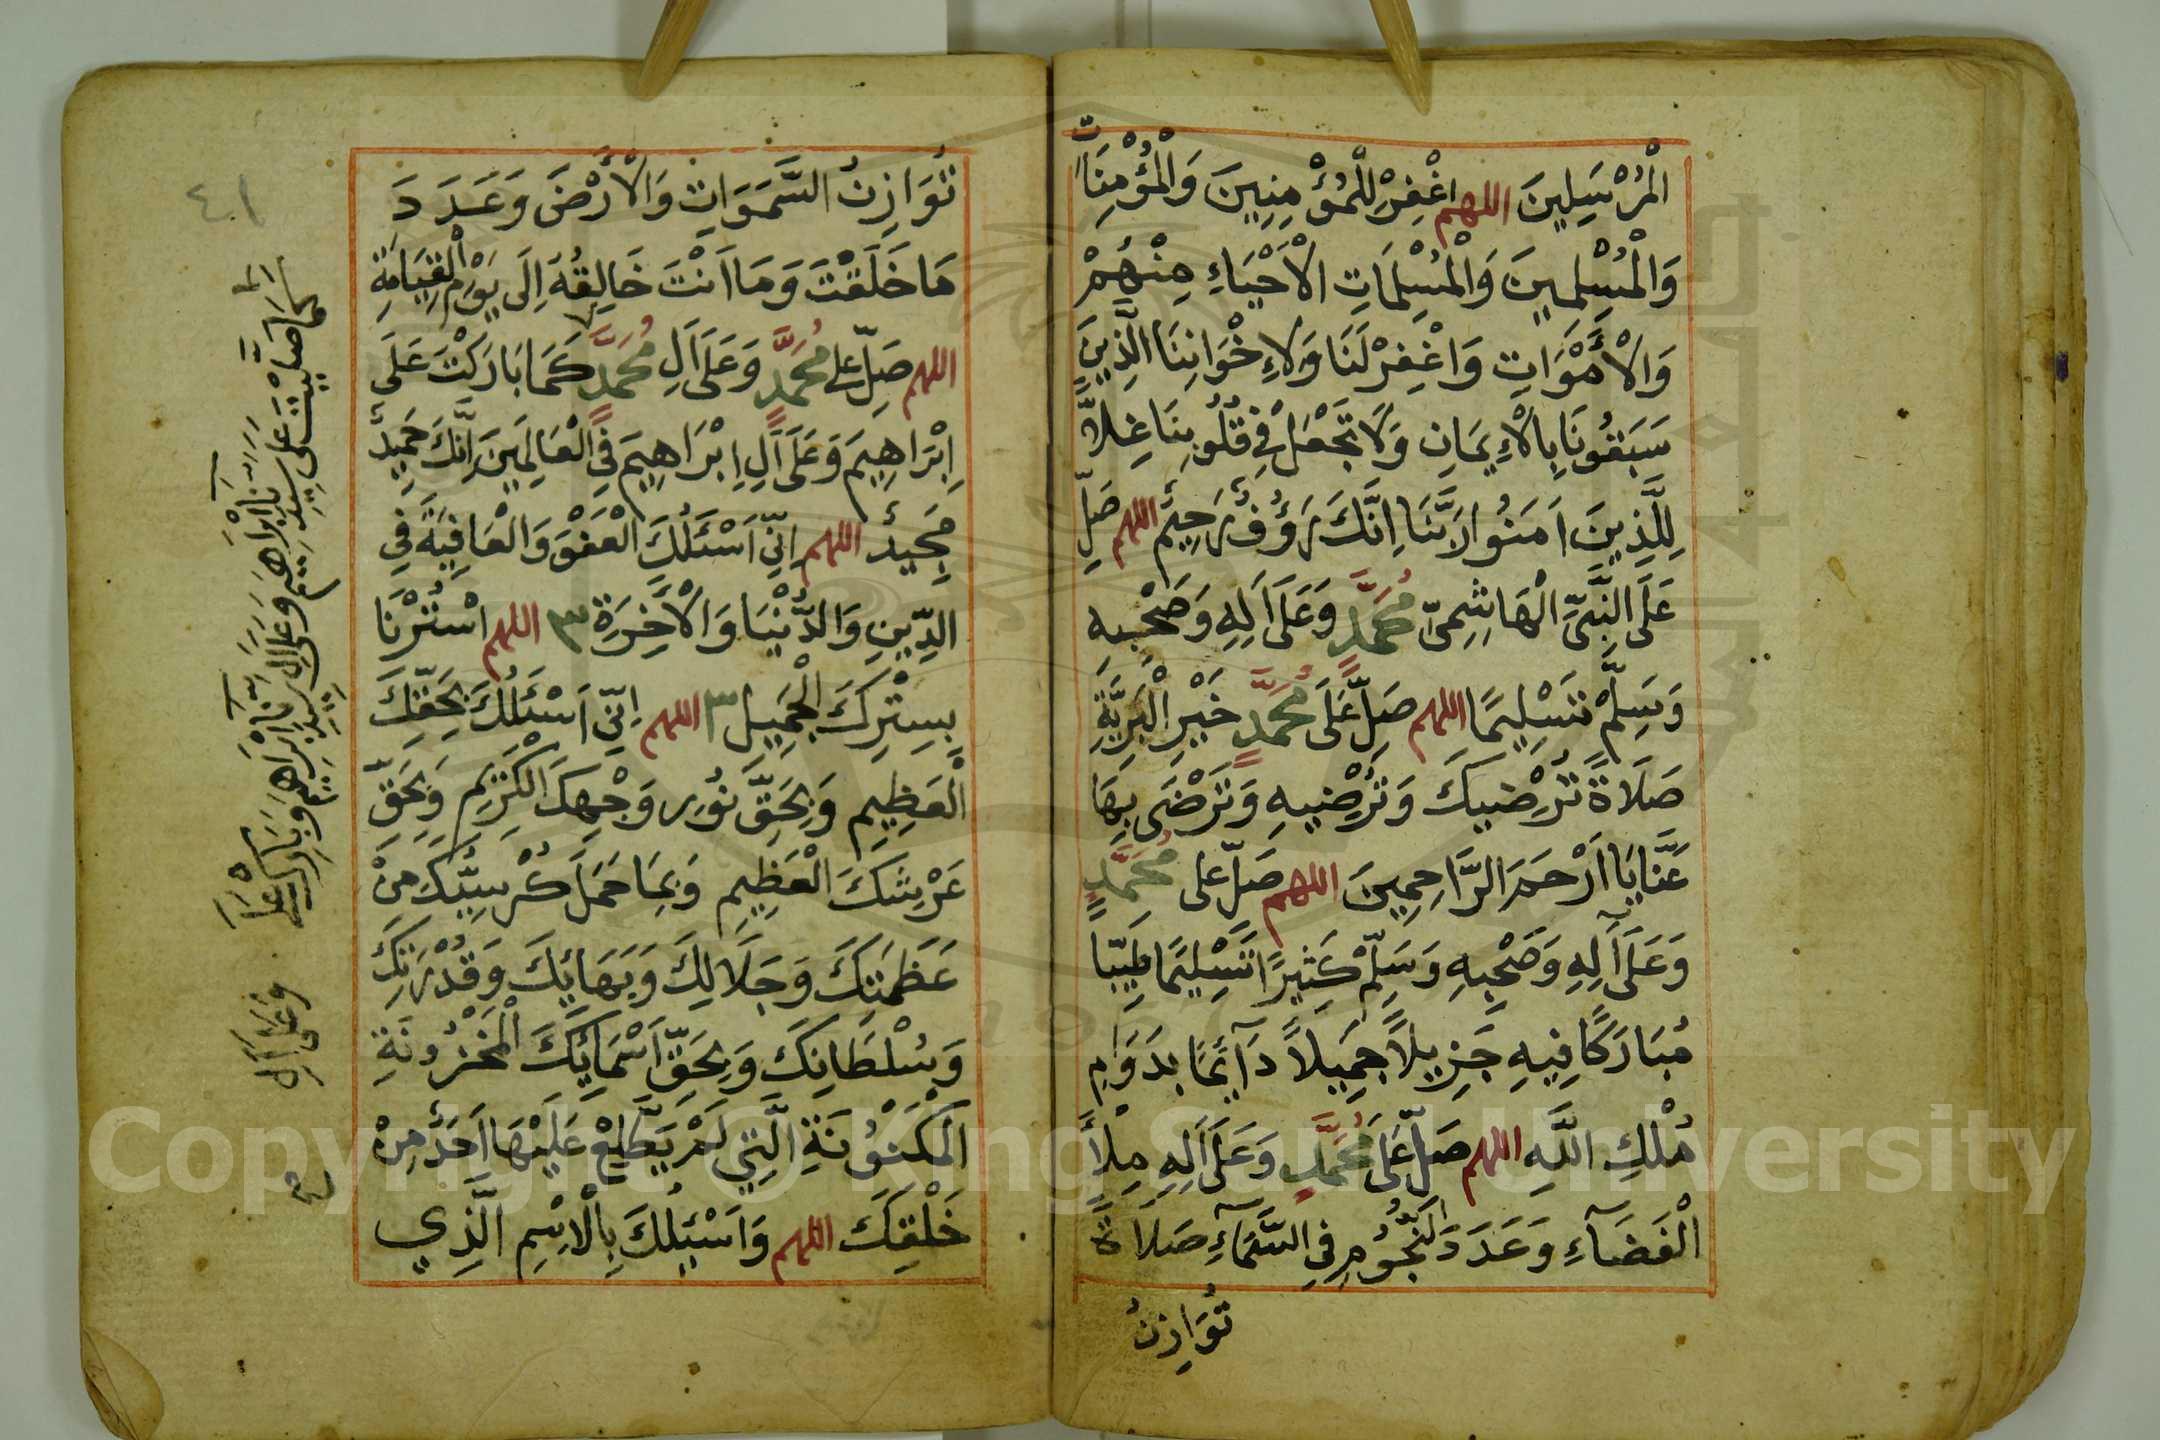 الْمُرْسَلِينَ اللهم اغْفِرْ لِلْمُؤْمِنِينَ وَالْمُؤْمِنَاتِ
وَالْمُسْلِمِينَ وَالْمُسْلِمَاتِ الْأَحْيَاءِ مِنْهُمْ
وَالْأَمْوَاتِ وَاغْفِرْ لَنَا وَلِإِخْوَانِنَا الَّذِينَ
سَبَقُونَا بِالْإِيمَانِ وَلَا تَجْعَلْ فِي قُلُوبِنَا غِلًّا
لِلَّذِينَ اٰمَنُوا رَبَّنَا اِنَّكَ رَؤُفٌ رَحِيمٌ اللهم صَلِّ
عَلَى النَّبِيِّ الْهَاشِمِيِّ مُحَمَّدٍ وَعَلَى اَلِهِ وَصَحْبِهِ
وَسَلِّمْ تَسْلِيمًا اللهم صَلِّ عَلَى مُحَمَّدٍ خَيْرِ الْبَرِيَّةِ
صَلَاةً تُرْضِيكَ وَتُرْضِيهِ وَتَرْضَى بِهَا
عَنَّا يَا اَرْحَمَ الرَّاحِمِينَ اللهم صَلِّ على مُحَمَّدٍ
وَعَلَى آلِهِ وَصَحْبِهِ وَسَلِّمْ كَثِيرًا تَسْلِيمًا طَيِّبًا
مُبَارَكًا فِيهِ جَزِيلاً جَمِيلاً دَآئِمًا بِدَوَامِ
مُلْكِ اللَّهِ اللهم صَلِّ عَلَى مُحَمَّدٍ وَعَلَى اَلِهِ مِلْأَ
الْفَضَآءِ وَعَدَدَ النُّجُومِ فِي السَّمَآءِ صَلَاةً
تُوَازِنُ
٤١
تُوَازِنُ السَّمَوَاتِ وَالْأَرْضَ وَعَدَدَ
مَا خَلَقْتَ وَمَا اَنْتَ خَالِقُهُ اِلَى يَوْمِ الْقِيَامَةِ
اللهم صَلِّ على مُحَمَّدٍ وَعَلَى اَلِ مُحَمَّدٍ كَمَا بَارَكْتَ عَلَى
اِبْرَاهِيمَ وَعَلَى اَلِ اِبْرَاهِيمَ فِي الْعَالَمِينَ اِنَّكَ حَمِيدٌ
مَجِيدٌ اللهم اِنِّي اَسْئَلُكَ الْعَفْوَ وَالْعَافِيَةَ فِي
الدِّينِ وَالدُّنْيَا وَالْاَخِرَةِ ٣ اللهم اسْتُرْنَا
بِسِتْرِكَ الْجَمِيلِ ٣ اللهم اِنِّي اَسْئَلُكَ بِحَقِّكَ
الْعَظِيمِ وَبِحَقِّ نُورِ وَجْهِكَ الْكَرِيمِ وَبِحَقِّ
عَرْشِكَ الْعَظِيمِ وَبِمَا حَمَلَ كُرْسِيُّكَ مِنْ
عَظَمَتِكَ وَجَلَالِكَ وَبَهَائِكَ وَقُدْرَتِكَ
وَسُلْطَانِكَ وَبِحَقِّ اَسْمَائِكَ الْمَخْزُونَةِ
الْمَكْنُونَةِ الَّتِي لَمْ يَطَّلِعْ عَلَيْهَا اَحَدٌ مِنْ
خَلْقِكَ اللهم وَاَسْئَلُكَ بِالْاِسْمِ الَّذِي
كَمَا صَلَّيْتَ عَلَى سَيِّدِنَا اِبْرَاهِيمَ وَعَلَى اَلِ سَيِّدِنَا اِبْرَاهِيمَ وَبَارِكْ عَلَى
وَعَلَى اَلِ
Copyright © King Saud University